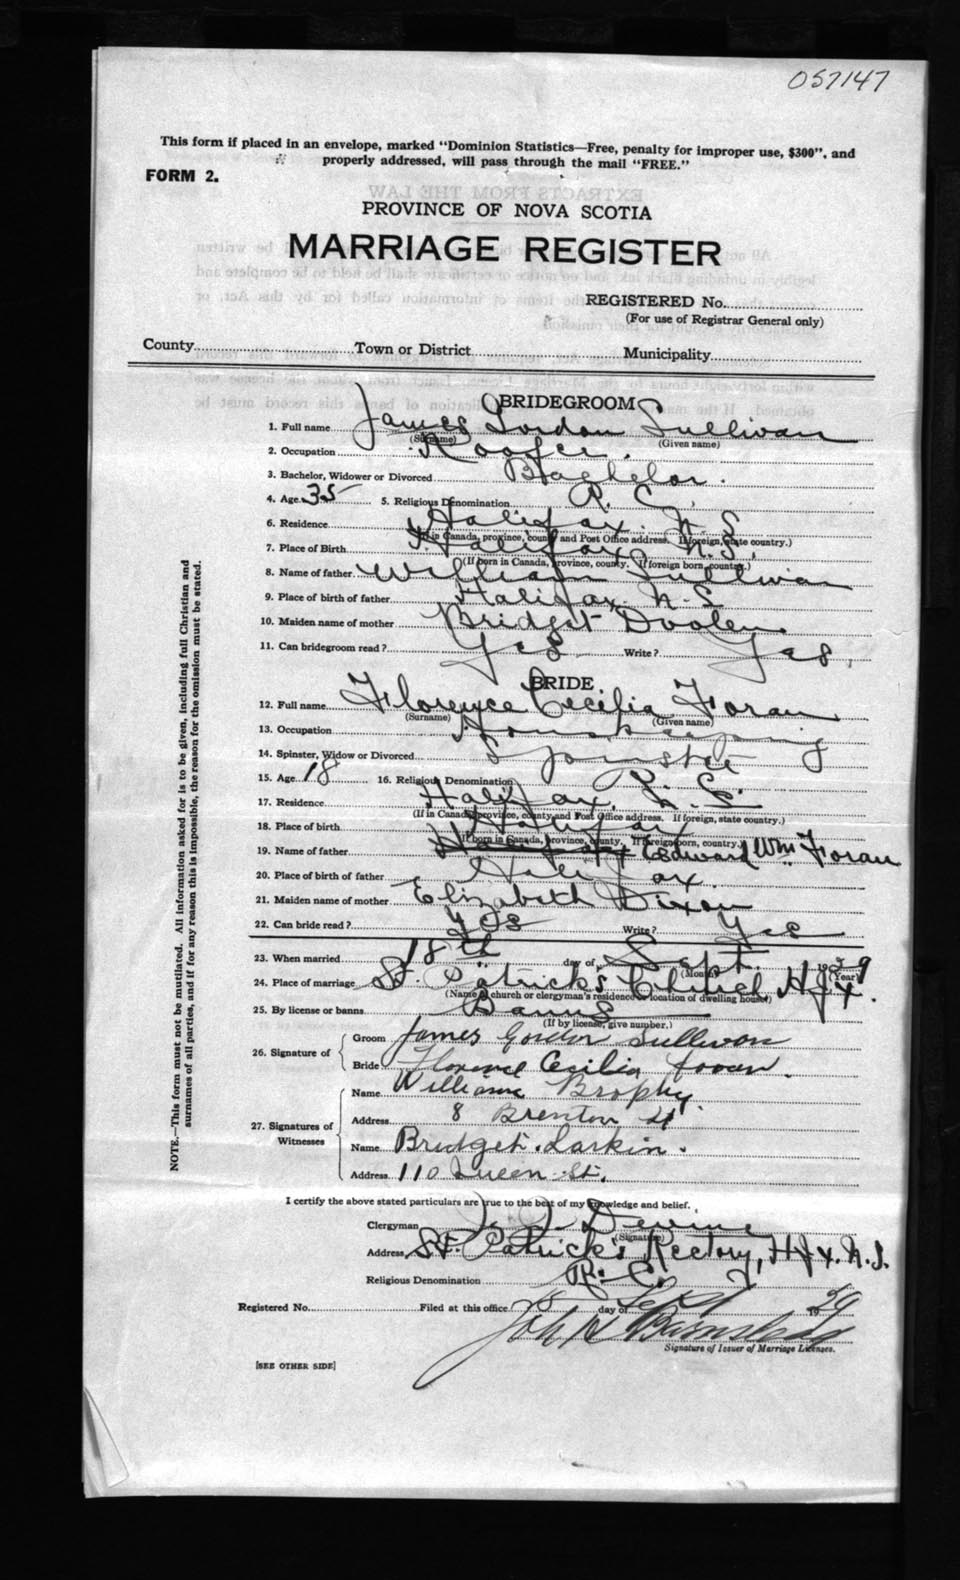 057147
This form if placed in an envelope, marked "Dominion Statistics—Free, penalty for improper use, $300", and
properly addressed, will pass through the mail "FREE."
FORM 2.
PROVINCE OF NOVA SCOTIA
MARRIAGE REGISTER
REGISTERED No.
(For use of Registrar General only)
County Town or District Municipality
BRIDEGROOM
1. Full name James Gordon Sullivan
(Surname) (Given name)
2. Occupation Roofer.
3. Bachelor, Widower or Divorced Bachelor.
4. Age 35 5. Religious Denomination R. C.
6. Residence Halifax. N. S
(If in Canada, province, county and Post Office address. If foreign, state country.)
7. Place of Birth Halifax, N.S,
(If born in Canada, province, county. If foreign born, country.)
8. Name of father William Sullivan
9. Place of birth of father Halifax. N. S
10. Maiden name of mother Bridget Doolen
11. Can bridegroom read? Yes Write? Yes,
BRIDE
12. Full name Florence Cecilia Foran
(Surname) (Given name)
13. Occupation Houskeeping
14. Spinster, Widow or Divorced Spinster
15. Age 18 16. Religious Denomination R. C.
17. Residence Halifax, N. S.
(If in Canada, province, county and Post Office address. If foreign, state country.)
18. Place of birth Halifax
(If born in Canada, province, county. If foreign born, country.)
19. Name of father Edward Wm Foran
20. Place of birth of father Halifax.
21. Maiden name of mother Elizabeth Dixon
22. Can bride read? Yes Write? Yes
23. When married 18th day of Sept 1929
(Month) (Year)
24. Place of marriage St. Patrick's Church Hfx.
(Name of church or clergyman's residence or location of dwelling house)
25. By license or banns Banns
(If by license, give number.)
26. Signature of
Groom James Gordon Sullivan
Bride Florence Cecilia Foran.
27. Signatures of Witnesses
Name William Brophy.
Address 8 Brenton St
Name Bridget. Larkin.
Address 110 Queen St.
I certify the above stated particulars are true to the best of my knowledge and belief.
Clergyman Devine
(Signature)
Address St. Patrick's Rectory, Hfx. N.S.
Religious Denomination R. C.
Registered No. Filed at this office day of Sept 1929
Signature of Issuer of Marriage Licenses.
[SEE OTHER SIDE]
NOTE.—This form must not be mutilated. All information asked for is to be given, including full Christian and
surnames of all parties, and if for any reason this is impossible, the reason for the omission must be stated.